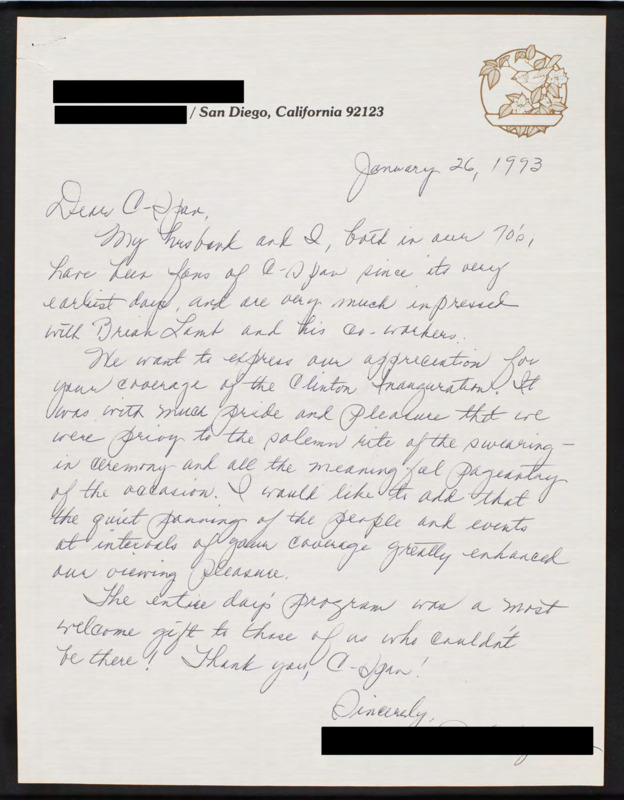 / San Diego, California 92123
January 26, 1993
Dear C-Span,
My husband and I, both in our 70's,
have been fans of C-Span since its very
earliest days, and are very much impressed
with Brian Lamb and his co-workers.
We want to express our appreciation for
your coverage of the Clinton Inauguration. It
was with much pride and pleasure that we
were privy to the solemn rite of the swearing-
in ceremony and all the meaningful pageantry
of the occasion. I would like to add that
the quiet panning of the people and events
at intervals of your coverage greatly enhanced
our viewing pleasure.
The entire day's program was a most
welcome gift to those of us who couldn't
be there! Thank you, C-Span!
Sincerely,